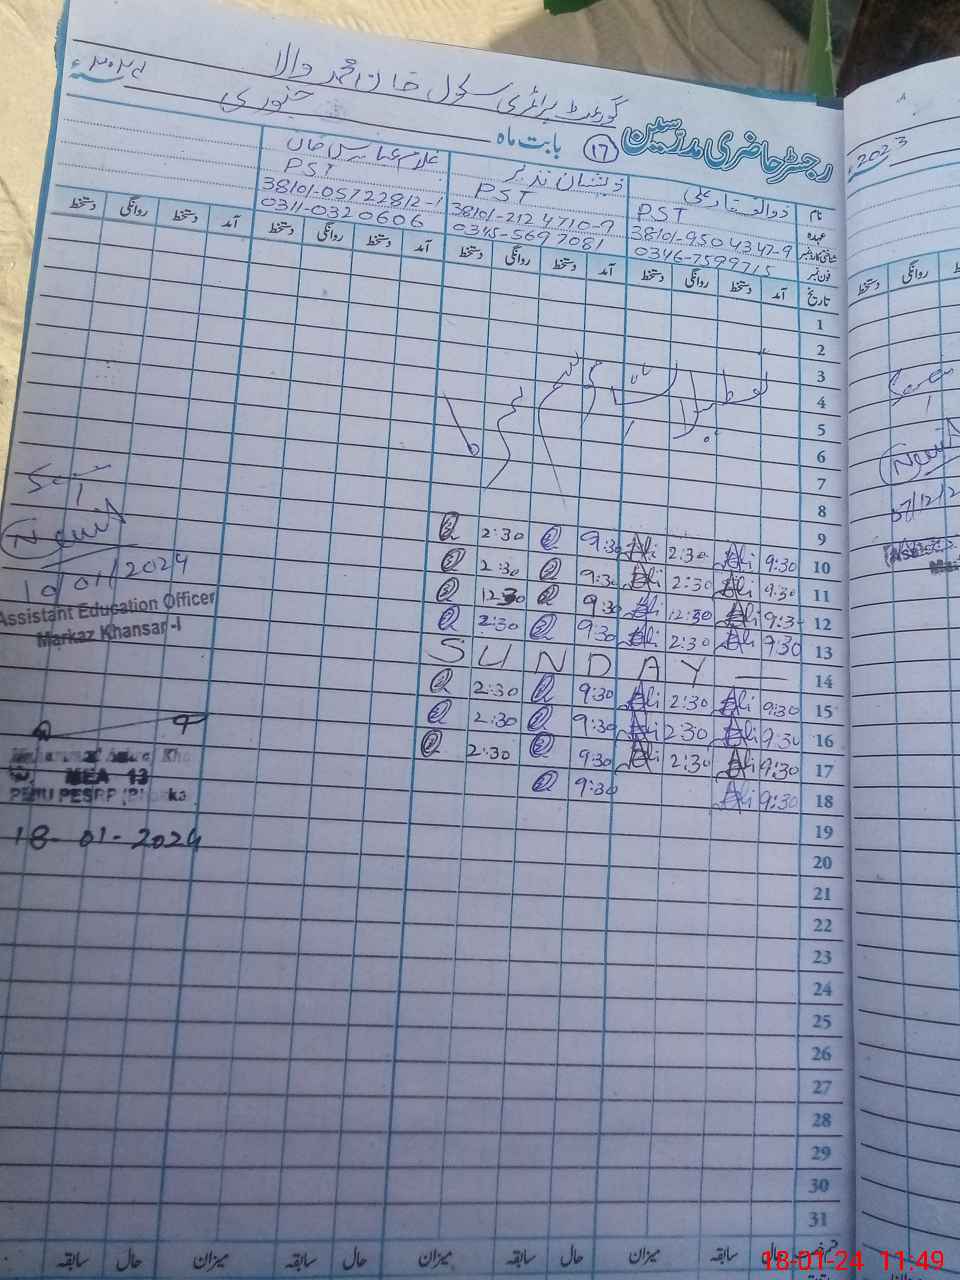 گورنمنٹ پرائمری سکول خان محمد والا
رجسٹر حاضری مدرسین ١٦ بابت ماہ جنوری ٢٠٢٤ء
نام ذوالفقار علی ذیشان نذیر غلام عباس خان
عہدہ PST PST PST
شناختی کارڈ نمبر 38101-9504347-9 38101-2124710-9 38101-0572812-1
فون نمبر 0346-7599715 0345-5697081 0311-0320606
تاریخ آمد دستخط روانگی دستخط آمد دستخط روانگی دستخط آمد دستخط روانگی دستخط آمد دستخط روانگی دستخط
1
2
3
4
5
6
7
8
9
10 9:30 Ali 2:30 Ali 9:30 2:30
11 9:30 Ali 2:30 Ali 9:30 2:30
12 9:30 Ali 12:30 Ali 9:30 12:30
13 9:30 Ali 2:30 Ali 9:30 2:30
14 SUNDAY
15 9:30 Ali 2:30 Ali 9:30 2:30
16 9:30 Ali 2:30 Ali 9:30 2:30
17 9:30 Ali 2:30 Ali 9:30 2:30
18 9:30 Ali 9:30
19
20
21
22
23
24
25
26
27
28
29
30
31
سابقہ حال میزان سابقہ حال میزان سابقہ حال میزان سابقہ حال
10/01/2024
Assistant Education Officer
Markaz Khansar-I
MEA 13
PMIU PESRP
18-01-2024
2023ء
روانگی دستخط
07/12/2
18-01-24 11:49